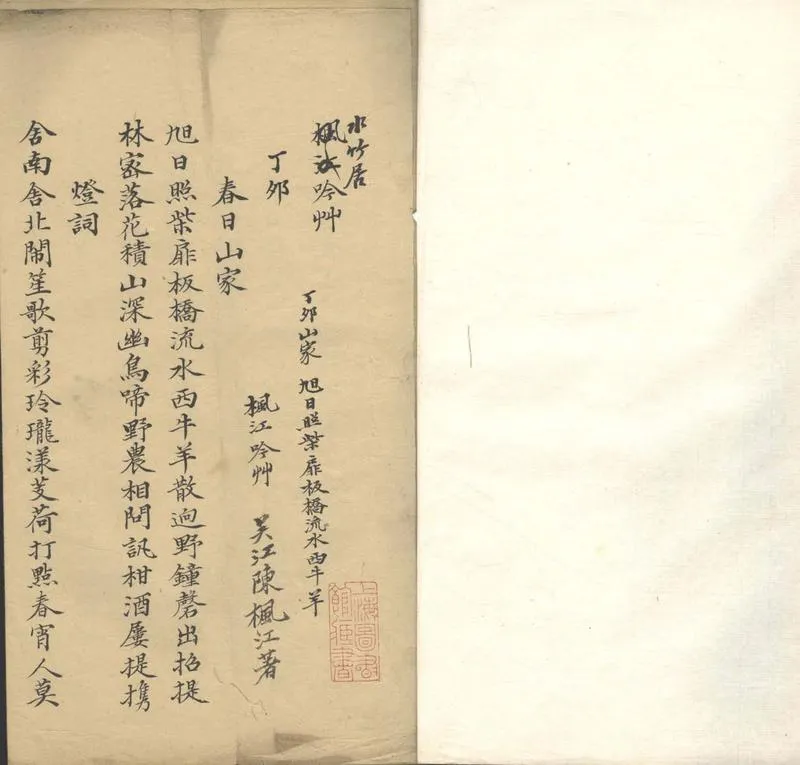 水竹居
楓江吟艸
丁夘山家 旭日照柴扉板橋流水西牛羊
丁夘
楓江吟艸 吴江陳楓江著
春日山家
旭日照柴扉板橋流水西牛羊散逈野鐘磬出招提
林密落花積山深幽鳥啼野農相問訊柑酒屢提携
燈詞
舍南舍北鬧笙歌剪彩玲瓏漾芰荷打點春宵人莫
上海圖書
館藏書